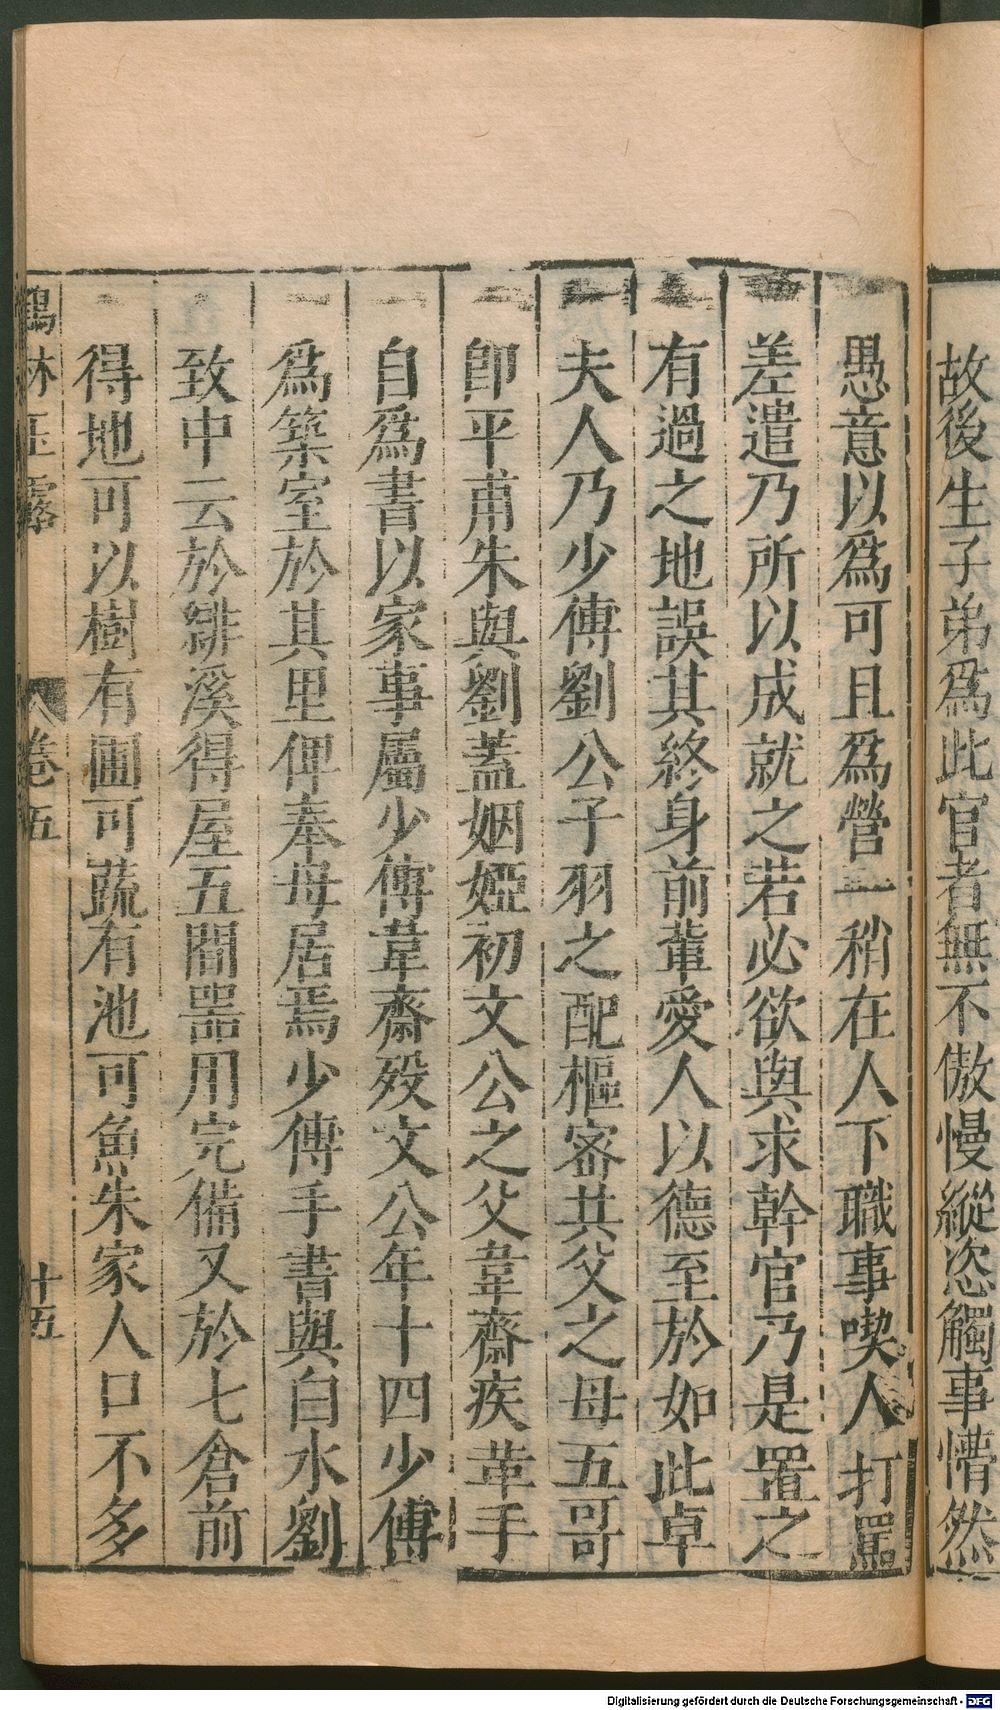 故後生子弟爲此官者無不傲慢縱恣觸事懵然
愚意以爲可且爲營一稍在人下職事喫人打罵
差遣乃所以成就之若必欲與求幹官乃是置之
有過之地誤其終身前輩愛人以德至於如此卓
夫人乃少傅劉公子羽之配樞密共父之母五哥
卽平甫朱與劉蓋姻婭初文公之父韋齋疾革手
自爲書以家事屬少傅韋齋歿文公年十四少傅
爲築室於其里俾奉母居焉少傅手書與白水劉
致中云於緋溪得屋五間器用完備又於七倉前
得地可以樹有圃可蔬有池可魚朱家人口不多
鶴林玉露 卷五 十五
Digitalisierung gefördert durch die Deutsche Forschungsgemeinschaft - DFG